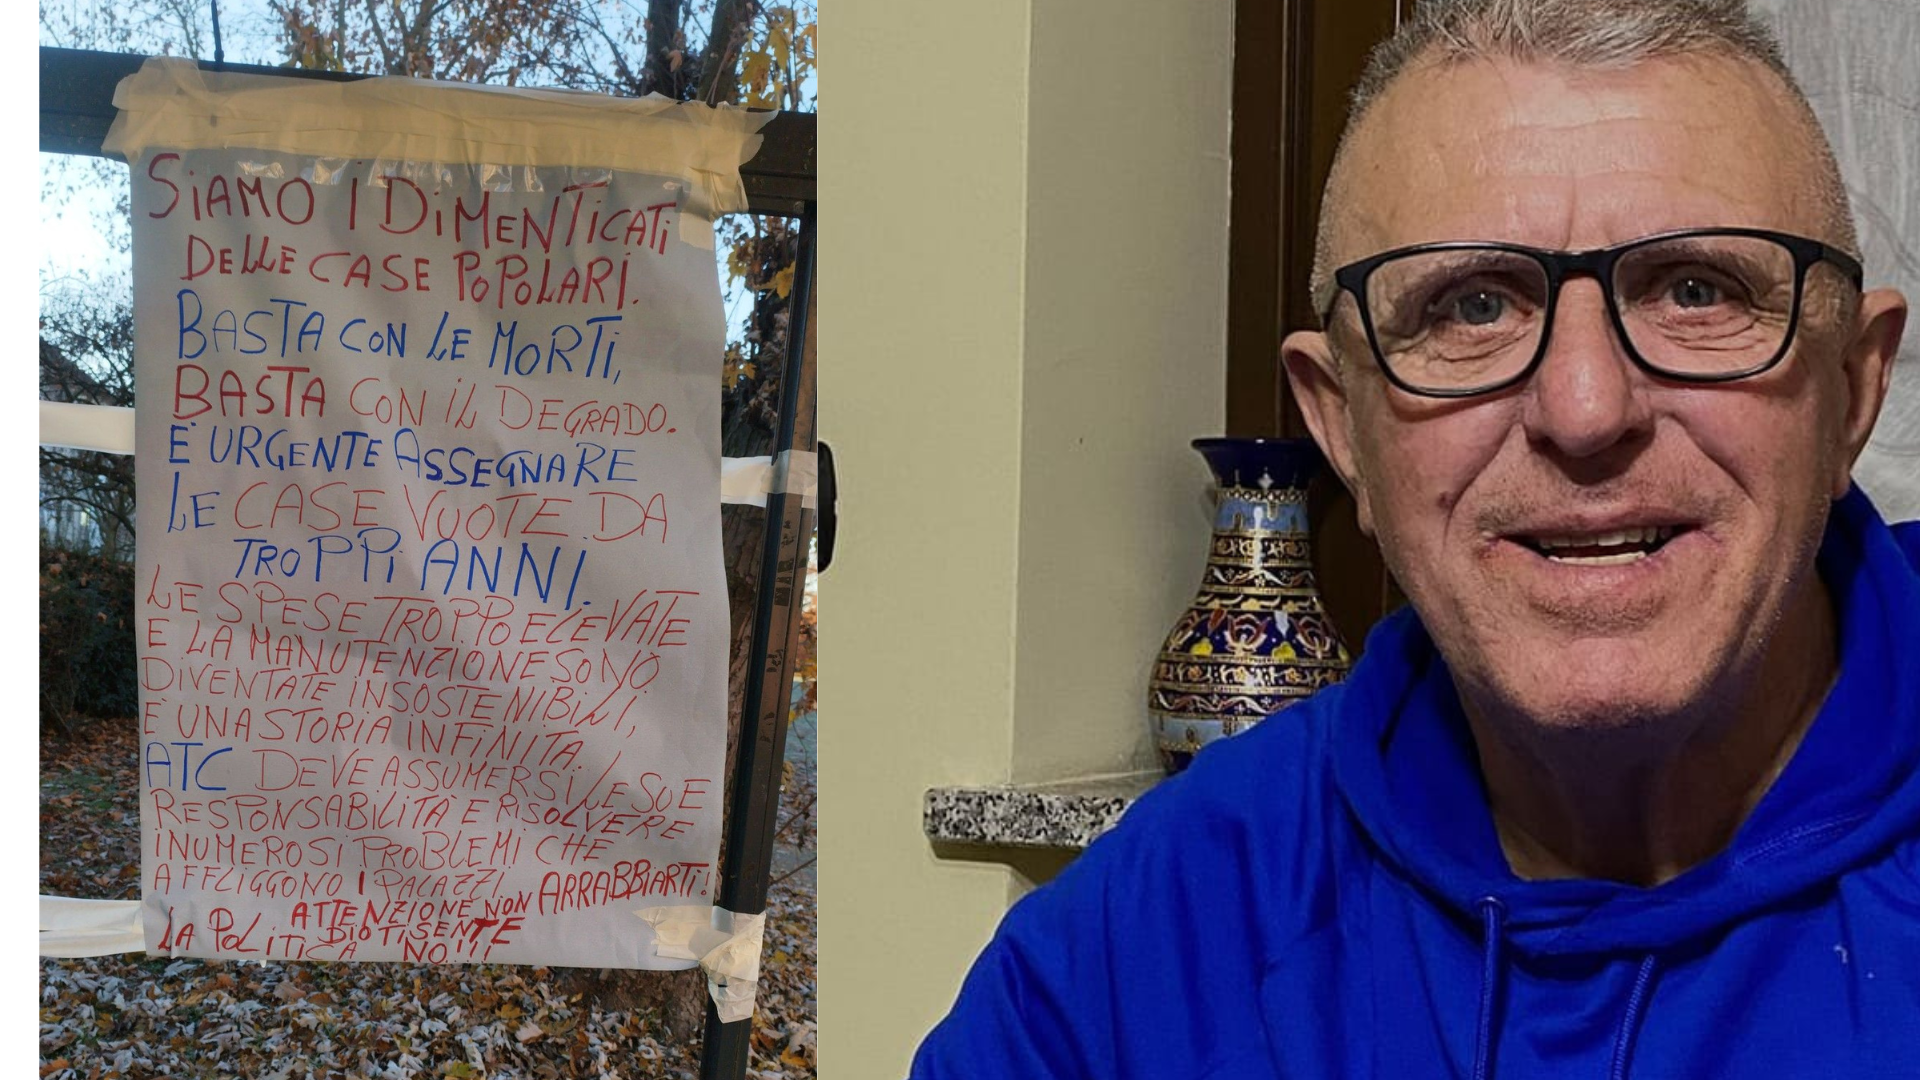 SIAMO I DIMENTICATI
DELLE CASE POPOLARI.
BASTA CON LE MORTI,
BASTA CON IL DEGRADO.
E' URGENTE ASSEGNARE
LE CASE VUOTE DA
TROPPI ANNI.
LE SPESE TROPPO ELEVATE
E LA MANUTENZIONE SONO
DIVENTATE INSOSTENIBILI,
E' UNA STORIA INFINITA.
ATC DEVE ASSUMERSI LE SUE
RESPONSABILITÀ E RISOLVERE
I NUMEROSI PROBLEMI CHE
AFFLIGGONO I PALAZZI.
ATTENZIONE NON ARRABBIARTI!
DIO TI SENTE
LA POLITICA NO!!!